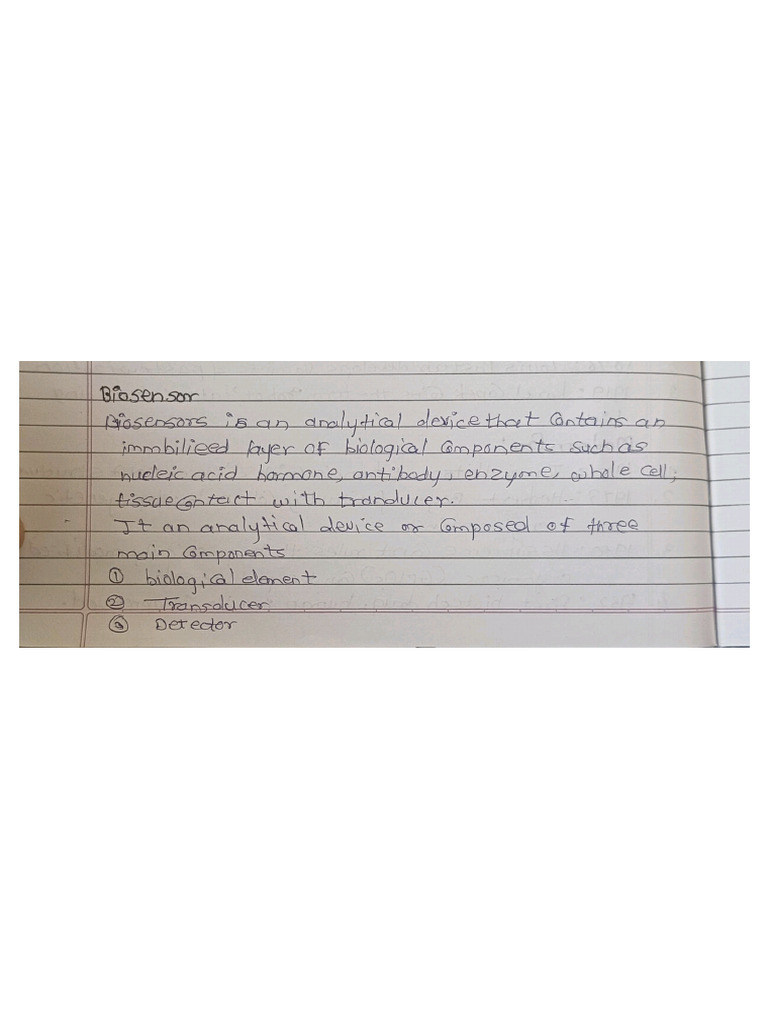 Biosensor
Biosensors is an analytical device that Contains an
immbilized layer of biological Components such as
nucleic acid hormone, antibody, enzyme, whole cell,
tissue Contact with tranducer.
It an analytical device or Composed of three
main Components
① biological element
② Transducer
③ Detector